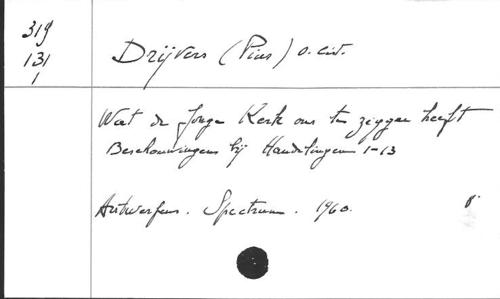 319
131
1
Drijvers (Pius) o. cist.
Wat de Jonge Kerk ons te zeggen heeft
Beschouwingen bij Handelingen 1-13
Antwerpen. Spectrum. 1960.